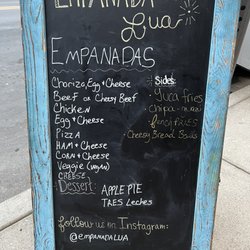 EMPANADA
Lua
EMPANADAS
Chorizo, Egg & Cheese
Beef or Cheesy Beef
Chicken
Egg & Cheese
Pizza
Ham & Cheese
Corn & Cheese
Veggie (vegan)
CHEESE
Dessert:
APPLE PIE
TRES Leches
Sides:
Yuca fries
Chipa
french fries
Cheesy Bread Balls
follow us on Instagram:
@empanadalua